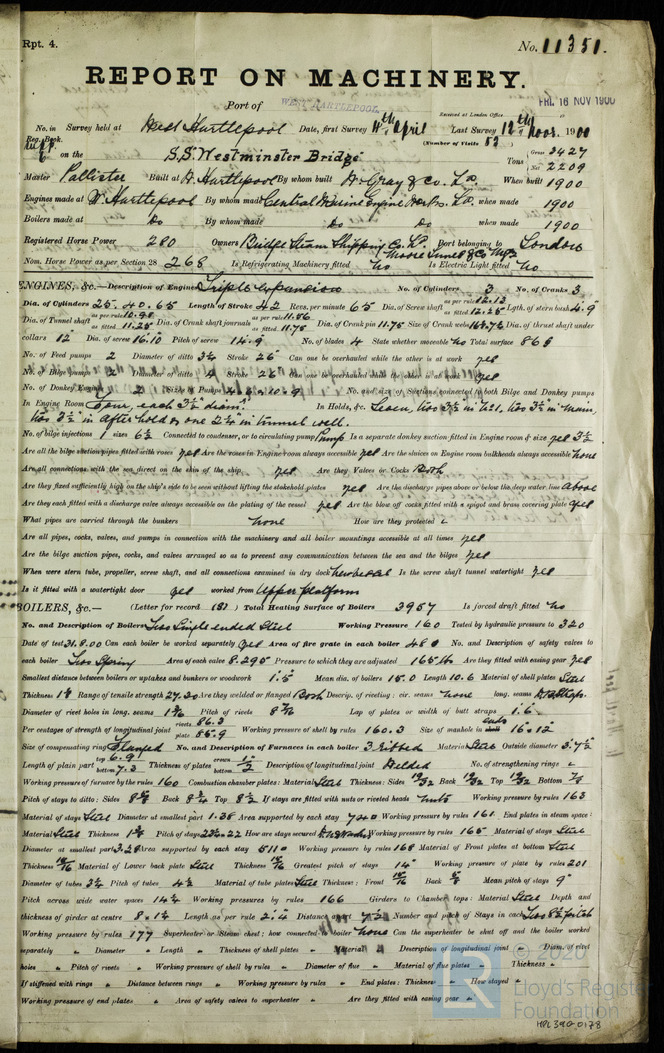 Rpt. 4.
No. 11351.
REPORT ON MACHINERY.
Port of WEST HARTLEPOOL
FRI. 16 NOV 1900
Received at London Office
No. in Survey held at West Hartlepool Date, first Survey 11th April Last Survey 12th Novr. 1900
Reg. Book.
(Number of Visits 52)
on the S.S. Westminster Bridge Tons Gross 3427 Net 2209
Master Pallister Built at W. Hartlepool By whom built W. Gray & Co. Ld. When built 1900
Engines made at W. Hartlepool By whom made Central Marine Engine Works. Ld. when made 1900
Boilers made at Do By whom made Do Do when made 1900
Registered Horse Power 280 Owners Bridge Steam Shipping Co. Ld. Port belonging to London
Nom. Horse Power as per Section 28 268 Is Refrigerating Machinery fitted no Is Electric Light fitted no
ENGINES, &c.— Description of Engines Triple expansion No. of Cylinders 3 No. of Cranks 3
Dia. of Cylinders 25. 40. 65 Length of Stroke 42 Revs. per minute 65 Dia. of Screw shaft as per rule 12.13 as fitted 12.25 Lgth. of stern bush 4.9"
Dia. of Tunnel shaft as per rule 10.98 as fitted 11.25 Dia. of Crank shaft journals as per rule 11.56 as fitted 11.75 Dia. of Crank pin 11.75 Size of Crank webs Dia. of thrust shaft under
collars 12" Dia. of screw 16.10 Pitch of screw 14.9 No. of blades 4 State whether moveable no Total surface
No. of Feed pumps 2 Diameter of ditto 3¼ Stroke 26" Can one be overhauled while the other is at work yes
No. of Bilge pumps 2 Diameter of ditto 4 Stroke 26" Can one be overhauled while the other is at work yes
No. of Donkey Engines 2 Sizes of Pumps No. and size of Suctions connected to both Bilge and Donkey pumps
In Engine Room Four, each 3½ diamr. In Holds, &c. Seven, two 3½ in No 1, two 3½ in main,
two 3½ in after hold & one 2¼ in tunnel well.
No. of bilge injections 1 sizes 6½ Connected to condenser, or to circulating pump Pump Is a separate donkey suction fitted in Engine room & size yes 3½
Are all the bilge suction pipes fitted with roses yes Are the roses in Engine room always accessible yes Are the sluices on Engine room bulkheads always accessible none
Are all connections with the sea direct on the skin of the ship yes Are they Valves or Cocks Both
Are they fixed sufficiently high on the ship's side to be seen without lifting the stokehold plates yes Are the discharge pipes above or below the deep water line above
Are they each fitted with a discharge valve always accessible on the plating of the vessel yes Are the blow off cocks fitted with a spigot and brass covering plate yes
What pipes are carried through the bunkers none How are they protected
Are all pipes, cocks, valves, and pumps in connection with the machinery and all boiler mountings accessible at all times yes
Are the bilge suction pipes, cocks, and valves arranged so as to prevent any communication between the sea and the bilges yes
When were stern tube, propeller, screw shaft, and all connections examined in dry dock new vessel Is the screw shaft tunnel watertight yes
Is it fitted with a watertight door yes worked from Upper platform
BOILERS, &c.— (Letter for record (S) ) Total Heating Surface of Boilers 3957 Is forced draft fitted no
No. and Description of Boilers Two Single ended Steel Working Pressure 160 Tested by hydraulic pressure to 320
Date of test 31.8.00 Can each boiler be worked separately yes Area of fire grate in each boiler No. and Description of safety valves to
each boiler Two Spring Area of each valve 8.295 Pressure to which they are adjusted 165 lbs Are they fitted with easing gear yes
Smallest distance between boilers or uptakes and bunkers or woodwork 1.5 Mean dia. of boilers 15.0 Length 10.6 Material of shell plates Steel
Thickness Range of tensile strength 27.30 Are they welded or flanged Both Descrip. of riveting: cir. seams none long. seams
Diameter of rivet holes in long. seams Pitch of rivets Lap of plates or width of butt straps 1.6
Per centages of strength of longitudinal joint rivets 86.3 plate 85.9 Working pressure of shell by rules 160.3 Size of manhole in ends 16 x 12
Size of compensating ring Flanged No. and Description of Furnaces in each boiler 3 Ribbed Material Steel Outside diameter 3.7½
Length of plain part top 6.9 bottom 7.3 Thickness of plates crown bottom ½ Description of longitudinal joint Welded No. of strengthening rings
Working pressure of furnace by the rules 160 Combustion chamber plates: Material Steel Thickness: Sides 19/32 Back 19/32 Top 19/32 Bottom 7/8
Pitch of stays to ditto: Sides Back Top 8½ If stays are fitted with nuts or riveted heads nuts Working pressure by rules 163
Material of stays Steel Diameter at smallest part 1.38 Area supported by each stay Working pressure by rules 161 End plates in steam space:
Material Steel Thickness Pitch of stays How are stays secured Working pressure by rules 165 Material of stays Steel
Diameter at smallest part 3.28 Area supported by each stay 511 Working pressure by rules 168 Material of Front plates at bottom Steel
Thickness Material of Lower back plate Steel Thickness Greatest pitch of stays 14" Working pressure of plate by rules 201
Diameter of tubes 3¼ Pitch of tubes 4½ Material of tube plates Steel Thickness: Front Back Mean pitch of stays 9"
Pitch across wide water spaces 14¼ Working pressures by rules 166 Girders to Chamber tops: Material Steel Depth and
thickness of girder at centre Length as per rule 2.4 Distance apart Number and pitch of Stays in each
Working pressure by rules 177 Superheater or Steam chest; how connected to boiler none Can the superheater be shut off and the boiler worked
separately " Diameter " Length " Thickness of shell plates " Material " Description of longitudinal joint " Diam. of rivet
holes " Pitch of rivets " Working pressure of shell by rules " Diameter of flue " Material of flue plates " Thickness "
If stiffened with rings " Distance between rings " Working pressure by rules " End plates: Thickness " How stayed "
Working pressure of end plates " Area of safety valves to superheater " Are they fitted with easing gear "
© 2020
Lloyd's Register
Foundation
HPL390-0178